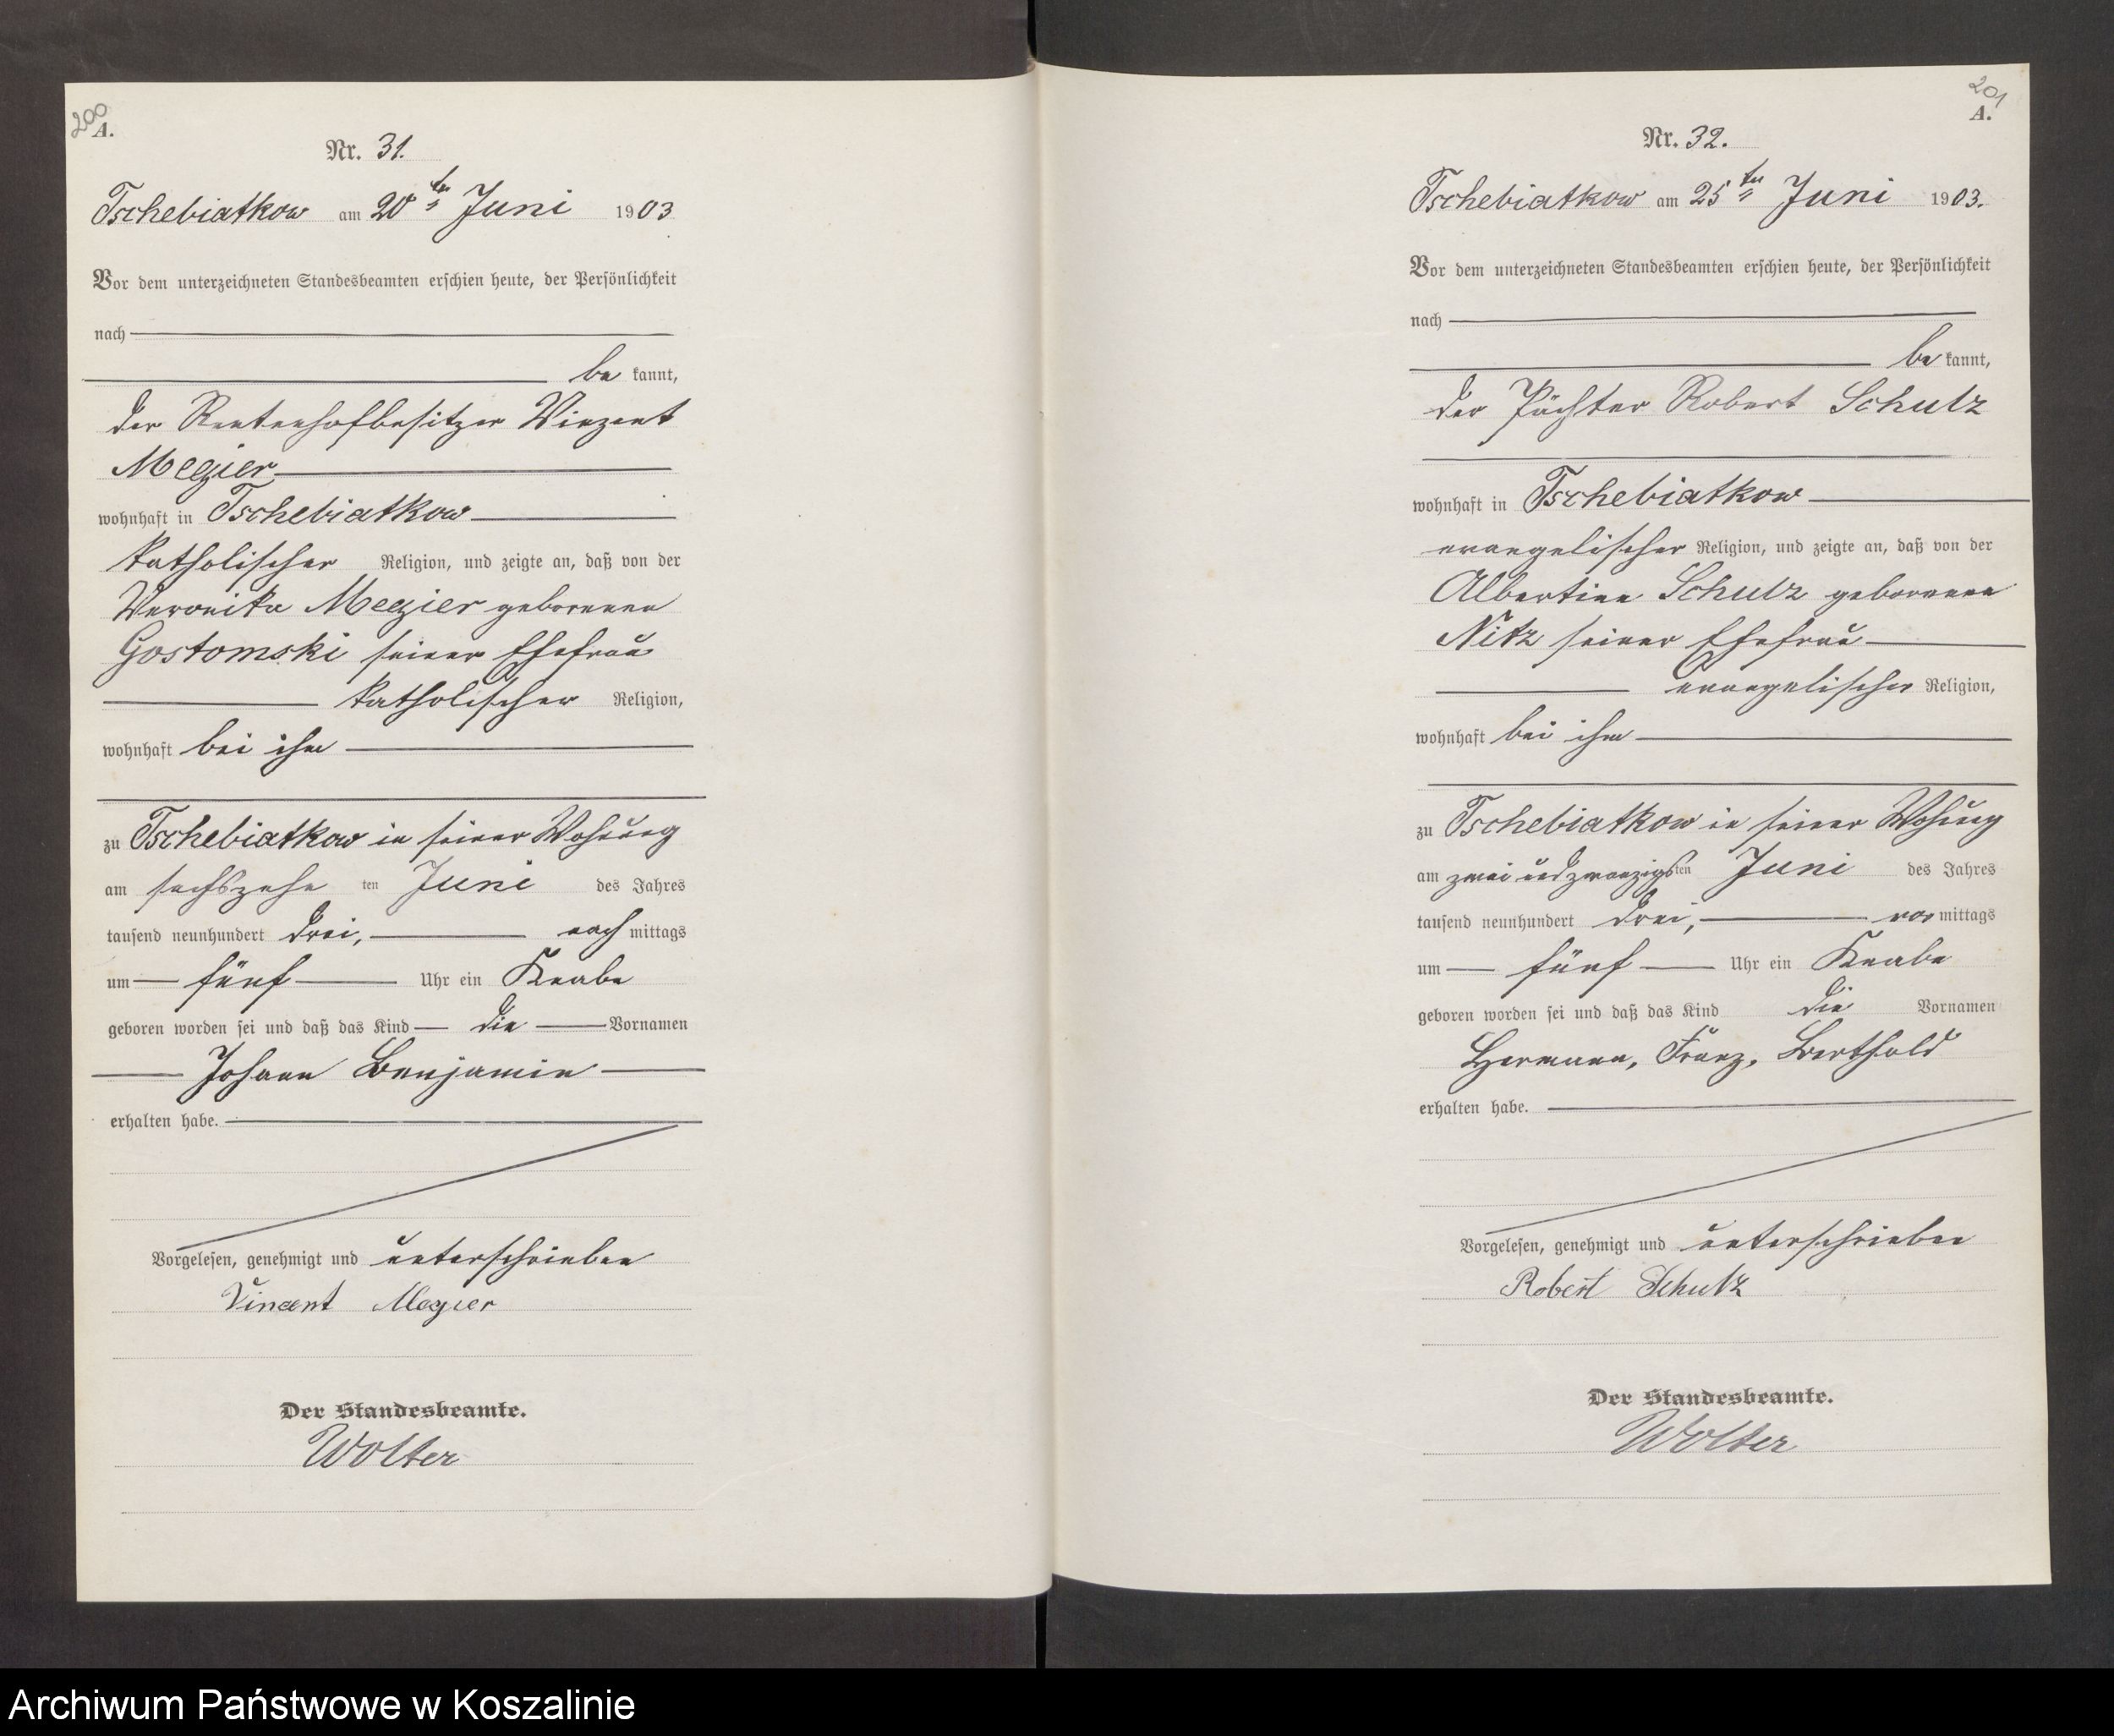 200
A.
Nr. 31.
Tschebiatkow am 20ten Juni 1903
Vor dem unterzeichneten Standesbeamten erschien heute, der Persönlichkeit
nach
be kannt,
der Rentenhofbesitzer Vinzent
Megier
wohnhaft in Tschebiatkow
katholischer Religion, und zeigte an, daß von der
Veronika Megier geborenen
Gostomski seiner Ehefrau
katholischer Religion,
wohnhaft bei ihm
zu Tschebiatkow in seiner Wohnung
am sechszehn ten Juni des Jahres
tausend neunhundert drei, nach mittags
um fünf Uhr ein Knabe
geboren worden sei und daß das Kind die Vornamen
Johann Benjamin
erhalten habe.
Vorgelesen, genehmigt und unterschrieben
Vincent Megier
Der Standesbeamte.
Wolter
201
A.
Nr. 32.
Tschebiatkow am 25ten Juni 1903.
Vor dem unterzeichneten Standesbeamten erschien heute, der Persönlichkeit
nach
be kannt,
der Pächter Robert Schulz
wohnhaft in Tschebiatkow
evangelischer Religion, und zeigte an, daß von der
Albertine Schulz geborenen
Nitz seiner Ehefrau
evangelischer Religion,
wohnhaft bei ihm
zu Tschebiatkow in seiner Wohnung
am zwei und zwanzigsten Juni des Jahres
tausend neunhundert drei, vor mittags
um fünf Uhr ein Knabe
geboren worden sei und daß das Kind die Vornamen
Hermann, Franz, Berthold
erhalten habe.
Vorgelesen, genehmigt und unterschrieben
Robert Schulz
Der Standesbeamte.
Wolter
Archiwum Państwowe w Koszalinie